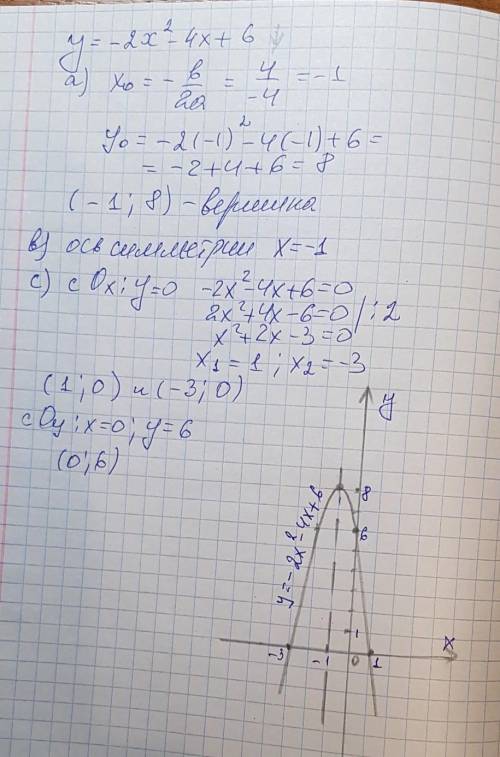 y = -2x² - 4x + 6
а) x₀ = -b/2a = 4/-4 = -1
y₀ = -2(-1)² - 4(-1) + 6 =
= -2 + 4 + 6 = 8
(-1; 8) - вершина
в) ось симметрии x = -1
с) с Ox: y=0 -2x² - 4x + 6 = 0
2x² + 4x - 6 = 0 | :2
x² + 2x - 3 = 0
x₁ = 1 ; x₂ = -3
(1; 0) и (-3; 0)
с Oy: x=0; y=6
(0; 6)
y
8
y = -2x² - 4x + 6
6
1
x
-3 -1 0 1